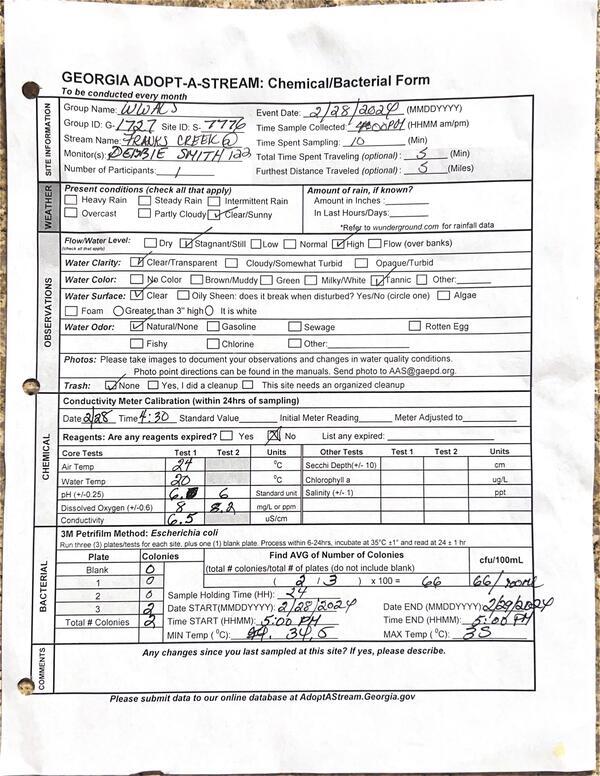 GEORGIA ADOPT-A-STREAM: Chemical/Bacterial Form
To be conducted every month
SITE INFORMATION
Group Name: WWALS Event Date: 2/28/2024 (MMDDYYYY)
Group ID: G-1727 Site ID: S-7776 Time Sample Collected: 4:00PM (HHMM am/pm)
Stream Name: FRANKS CREEK @ Time Spent Sampling: 10 (Min)
Monitor(s): DEBBIE SMITH 122 Total Time Spent Traveling (optional): 5 (Min)
Number of Participants: 1 Furthest Distance Traveled (optional): 5 (Miles)
WEATHER
Present conditions (check all that apply) Amount of rain, if known?
Heavy Rain Steady Rain Intermittent Rain Amount in Inches :
Overcast Partly Cloudy Clear/Sunny In Last Hours/Days:
*Refer to wunderground.com for rainfall data
OBSERVATIONS
Flow/Water Level: Dry Stagnant/Still Low Normal High Flow (over banks)
(check all that apply)
Water Clarity: Clear/Transparent Cloudy/Somewhat Turbid Opaque/Turbid
Water Color: No Color Brown/Muddy Green Milky/White Tannic Other:
Water Surface: Clear Oily Sheen: does it break when disturbed? Yes/No (circle one) Algae
Foam Greater than 3" high It is white
Water Odor: Natural/None Gasoline Sewage Rotten Egg
Fishy Chlorine Other:
Photos: Please take images to document your observations and changes in water quality conditions.
Photo point directions can be found in the manuals. Send photo to AAS@gaepd.org.
Trash: None Yes, I did a cleanup This site needs an organized cleanup
CHEMICAL
Conductivity Meter Calibration (within 24hrs of sampling)
Date 2/28 Time 4:30 Standard Value Initial Meter Reading Meter Adjusted to
Reagents: Are any reagents expired? Yes No List any expired:
Core Tests Test 1 Test 2 Units Other Tests Test 1 Test 2 Units
Air Temp 24 °C Secchi Depth(+/- 10) cm
Water Temp 20 °C Chlorophyll a ug/L
pH (+/-0.25) 6. 6 Standard unit Salinity (+/- 1) ppt
Dissolved Oxygen (+/-0.6) 8 8.2 mg/L or ppm
Conductivity 6.5 uS/cm
BACTERIAL
3M Petrifilm Method: Escherichia coli
Run three (3) plates/tests for each site, plus one (1) blank plate. Process within 6-24hrs, incubate at 35°C ±1° and read at 24 ± 1 hr
Plate Colonies Find AVG of Number of Colonies cfu/100mL
Blank 0 (total # colonies/total # of plates (do not include blank)
1 0 ( 2 / 3 ) x 100 = 66 66/100mL
2 0 Sample Holding Time (HH): 24
3 2 Date START(MMDDYYYY): 2/28/2024 Date END (MMDDYYYY): 2/29/2024
Total # Colonies 2 Time START (HHMM): 5:00 PM Time END (HHMM): 5:00 PM
MIN Temp (°C): 34.5 MAX Temp (°C): 35
COMMENTS
Any changes since you last sampled at this site? If yes, please describe.
Please submit data to our online database at AdoptAStream.Georgia.gov